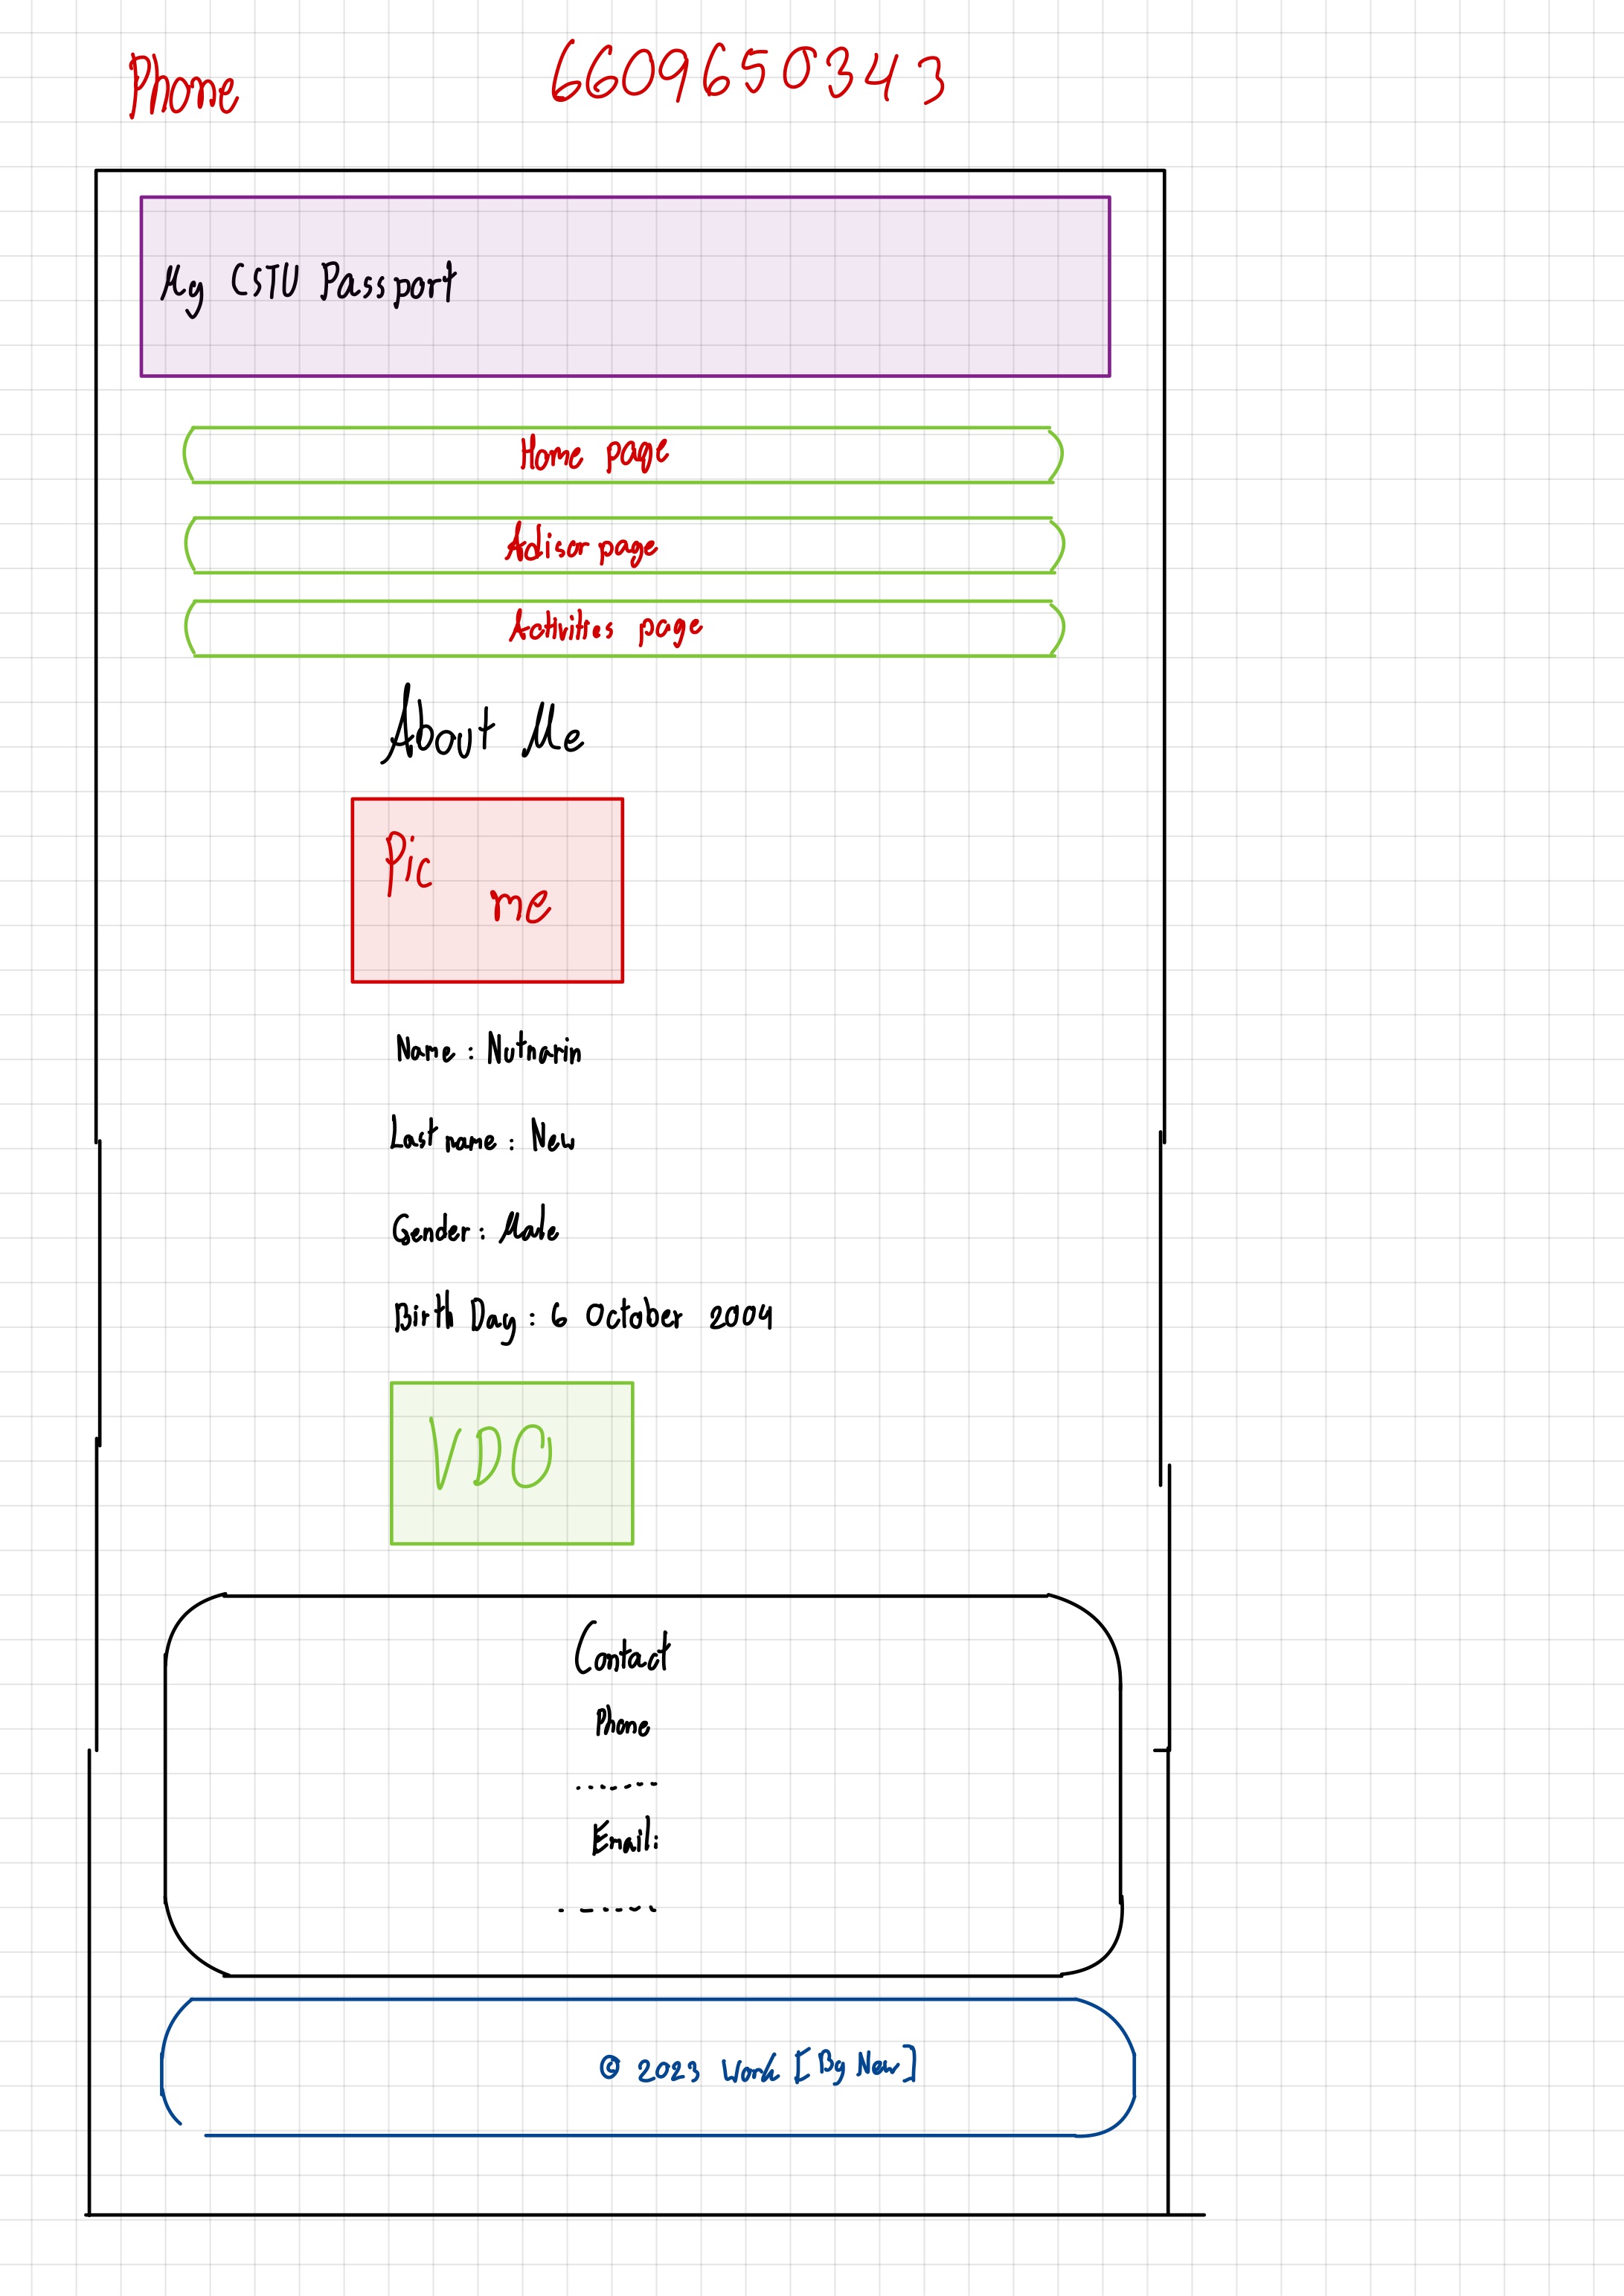 Phone 6609650343
My CSTU Passport
Home page
Adisor page
Activities page
About Me
Pic
me
Name : Nutnarin
Last name : New
Gender : Male
Birth Day : 6 October 2004
VDO
Contact
Phone
.......
Email:
.......
© 2023 Work [By New]